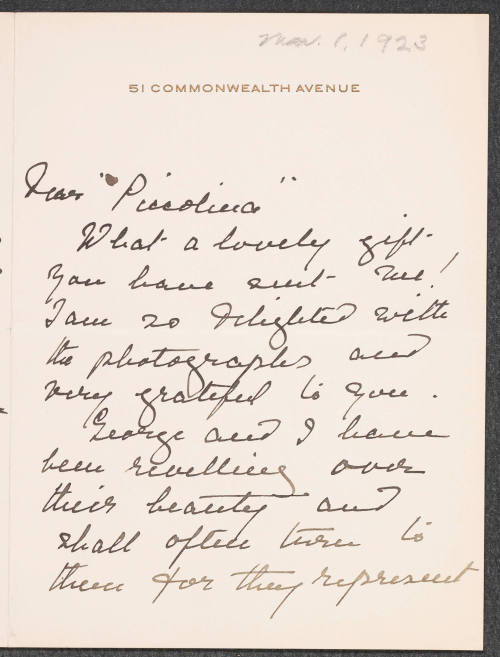 Mar. 1, 1923
51 COMMONWEALTH AVENUE
Dear "Piccolina"
What a lovely gift
you have sent me!
I am so delighted with
the photographs and
very grateful to you.
George and I have
been revelling over
their beauty and
shall often turn to
them for they represent